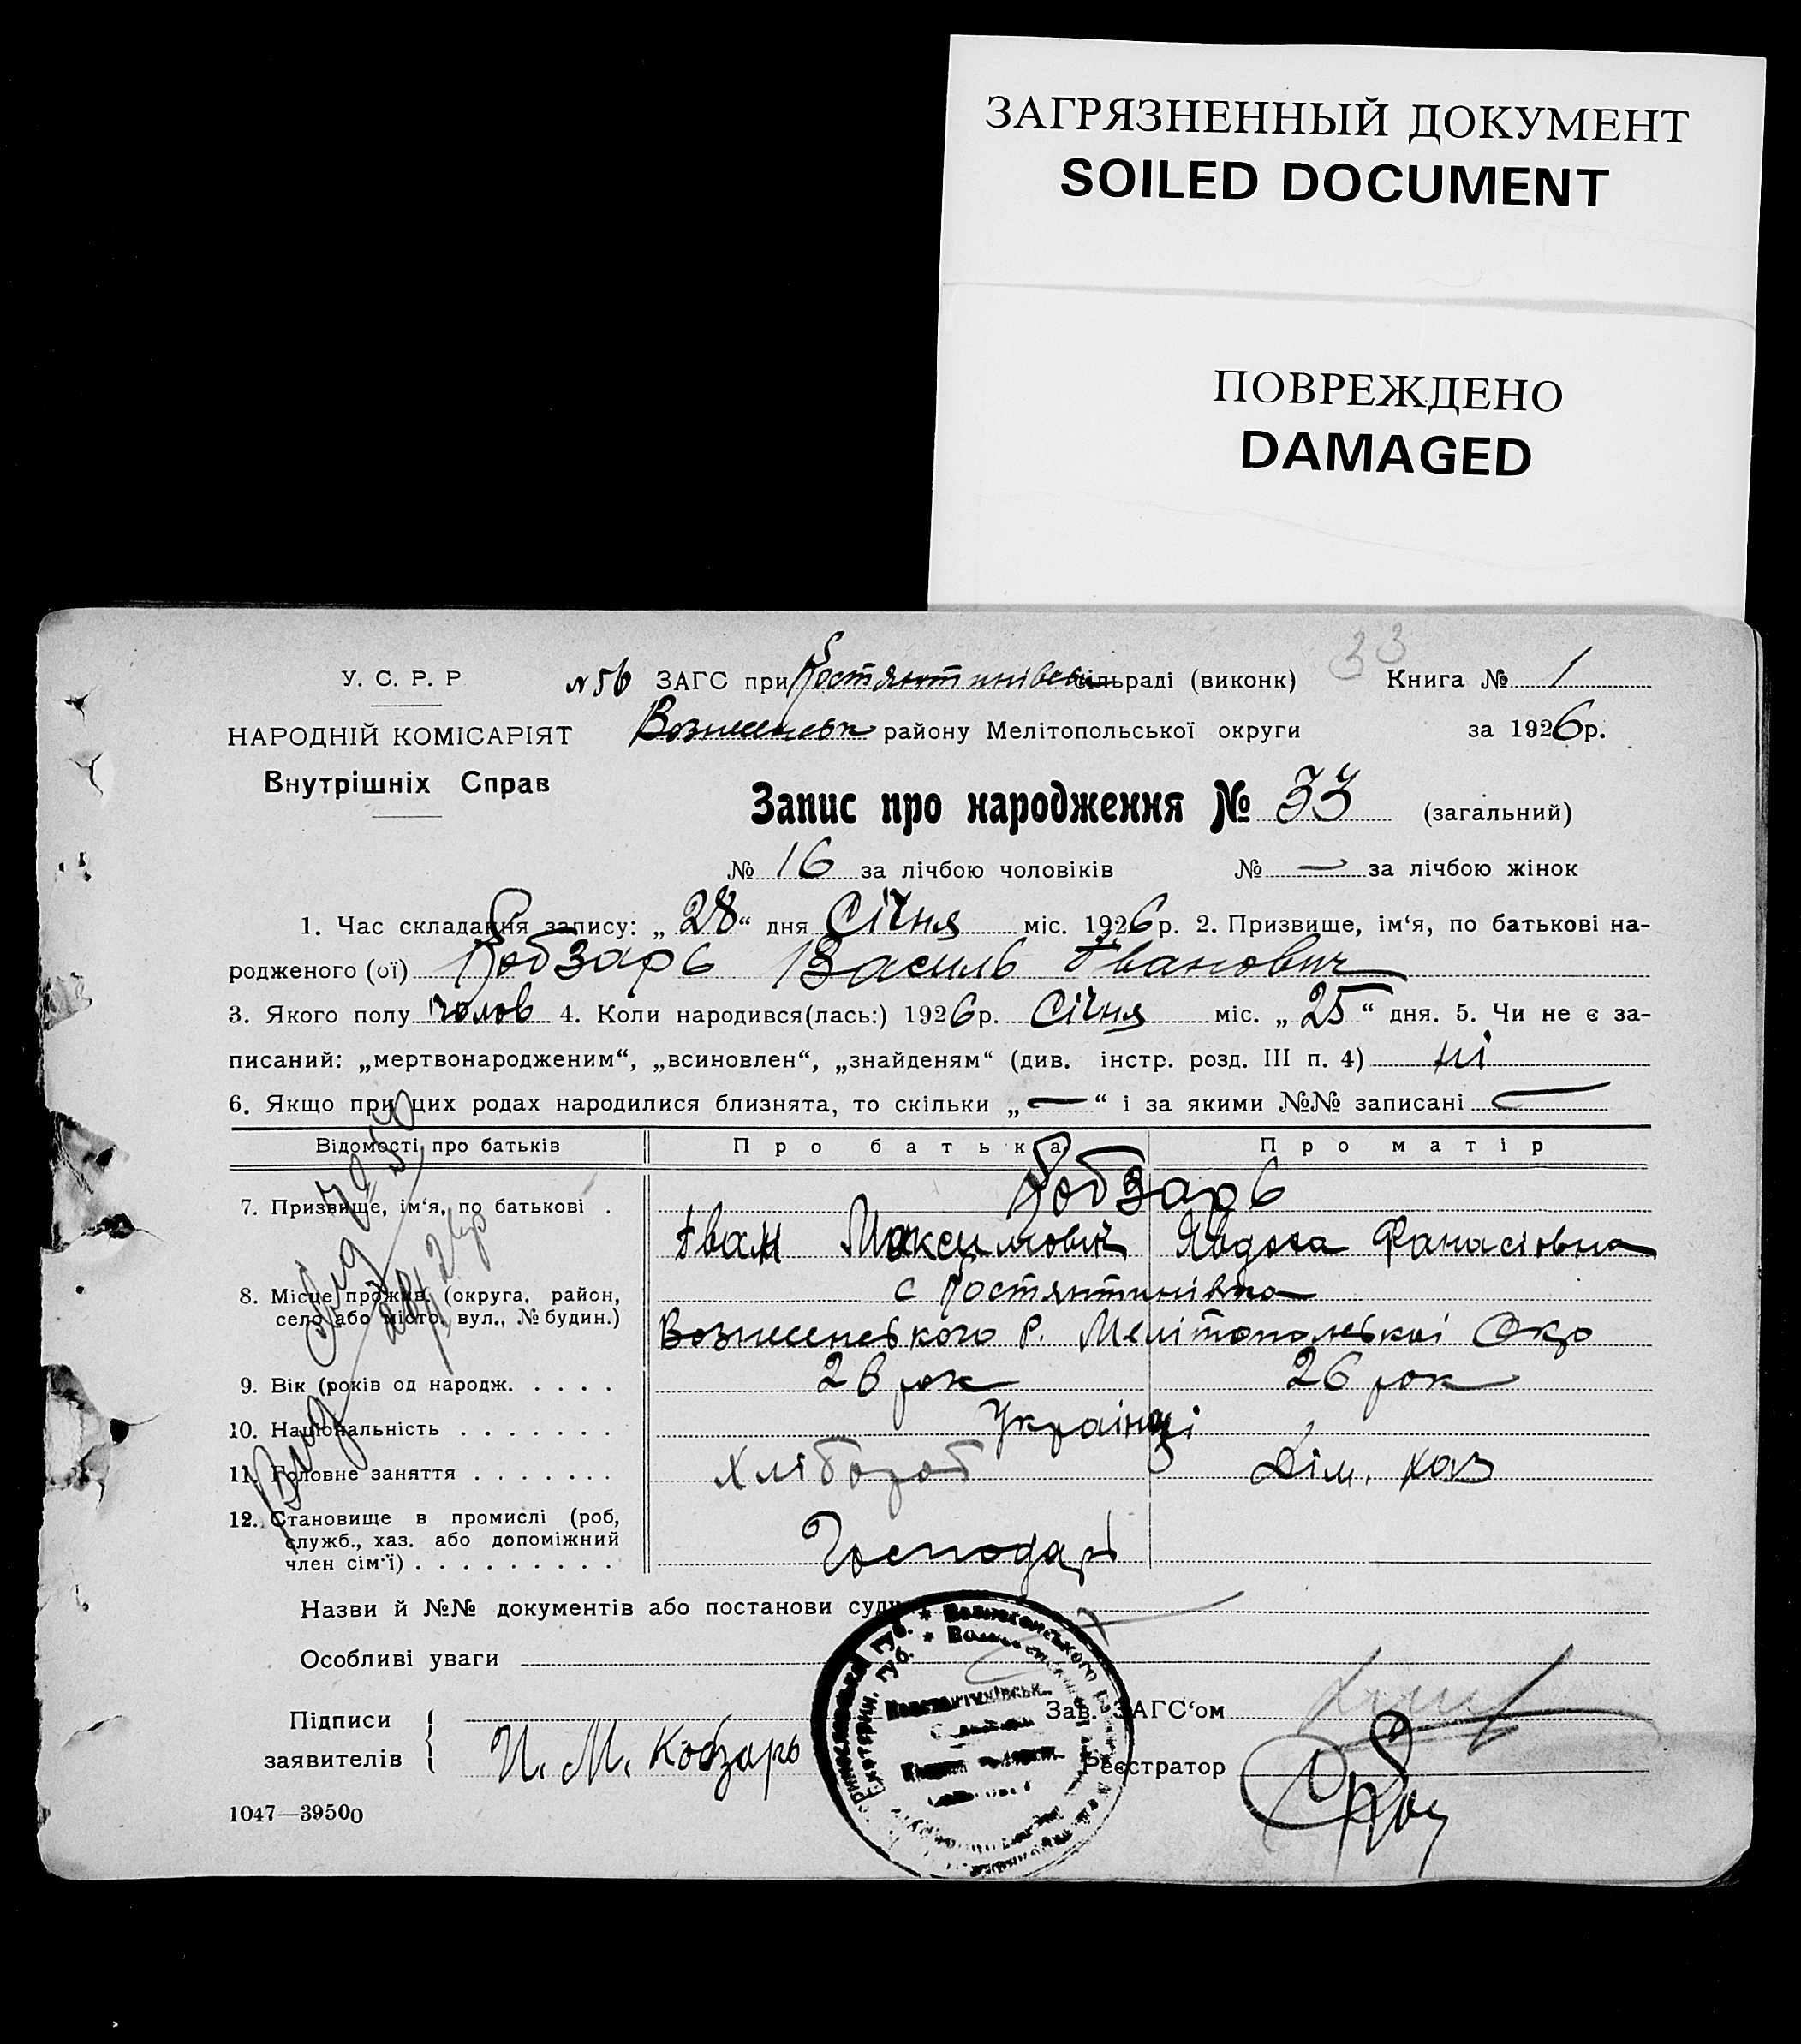 ЗАГРЯЗНЕННЫЙ ДОКУМЕНТ
SOILED DOCUMENT
ПОВРЕЖДЕНО
DAMAGED
33
У. С. Р. Р
НАРОДНІЙ КОМІСАРІЯТ
Внутрішніх Справ
№ 56 ЗАГС при Костянтинівськ сільраді (виконк) Книга № 1
Вознесенськ району Мелітопольської округи за 1926р.
Запис про народження № 33 (загальний)
№ 16 за лічбою чоловіків № — за лічбою жінок
1. Час складання запису: „28“ дня Січня міс. 1926р. 2. Призвище, ім‘я, по батькові на-
родженого (ої) Кобзарь Василь Іванович
3. Якого полу чолов 4. Коли народився(лась:) 1926р. Січня міс. „25“ дня. 5. Чи не є за-
писаний: „мертвонародженим“, „всиновлен“, „знайденям“ (див. інстр. розд. III п. 4) ні
6. Якщо при цих родах народилися близнята, то скільки „—“ і за якими №№ записані —
Відомості про батьків Про батька Про матір
Кобзарь
7. Призвище, ім‘я, по батькові . Іван Максимовіч Явдоха Фанасіовна
8. Місце прожив. (округа, район, с Костянтинівка
село або місто, вул., № будин.) Вознесенського Р. Мелітопольскої Окр
9. Вік (років од народж. . . . . 26 рок 26 рок
10. Національність . . . . . . . Українці
11. Головне заняття . . . . . . . Хлібороб Дім. хаз
12. Становище в промислі (роб,
служб., хаз. або допоміжний
член сім‘ї) . . . . . . . . . Господарь
Назви й №№ документів або постанови суду
Особливі уваги
Підписи
заявителів И. М. Кобзарь
Зав. ЗАГС‘ом
Реєстратор
1047—39500